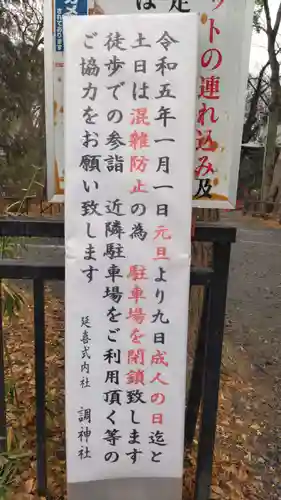 令和五年一月一日元旦より九日成人の日迄と
土日は混雑防止の為 駐車場を閉鎖致します
徒歩での参詣 近隣駐車場をご利用頂く等の
ご協力をお願い致します
延喜式内社 調神社
ットの連れ込み及
は
足